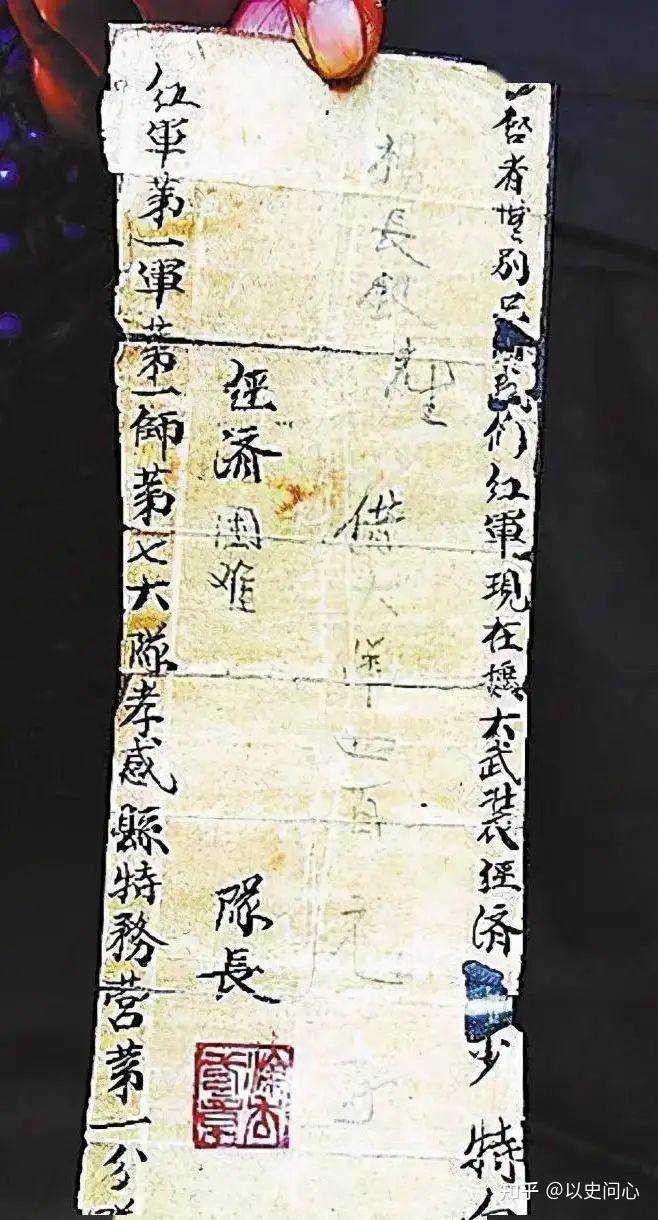 啓者無別只我们红軍現在擴大武裝經濟少 特
楊長銀先生 借大洋四百元
經濟困难 隊長
红軍第一軍第一師第七大隊孝感縣特務营第一分隊
知乎 @以史问心